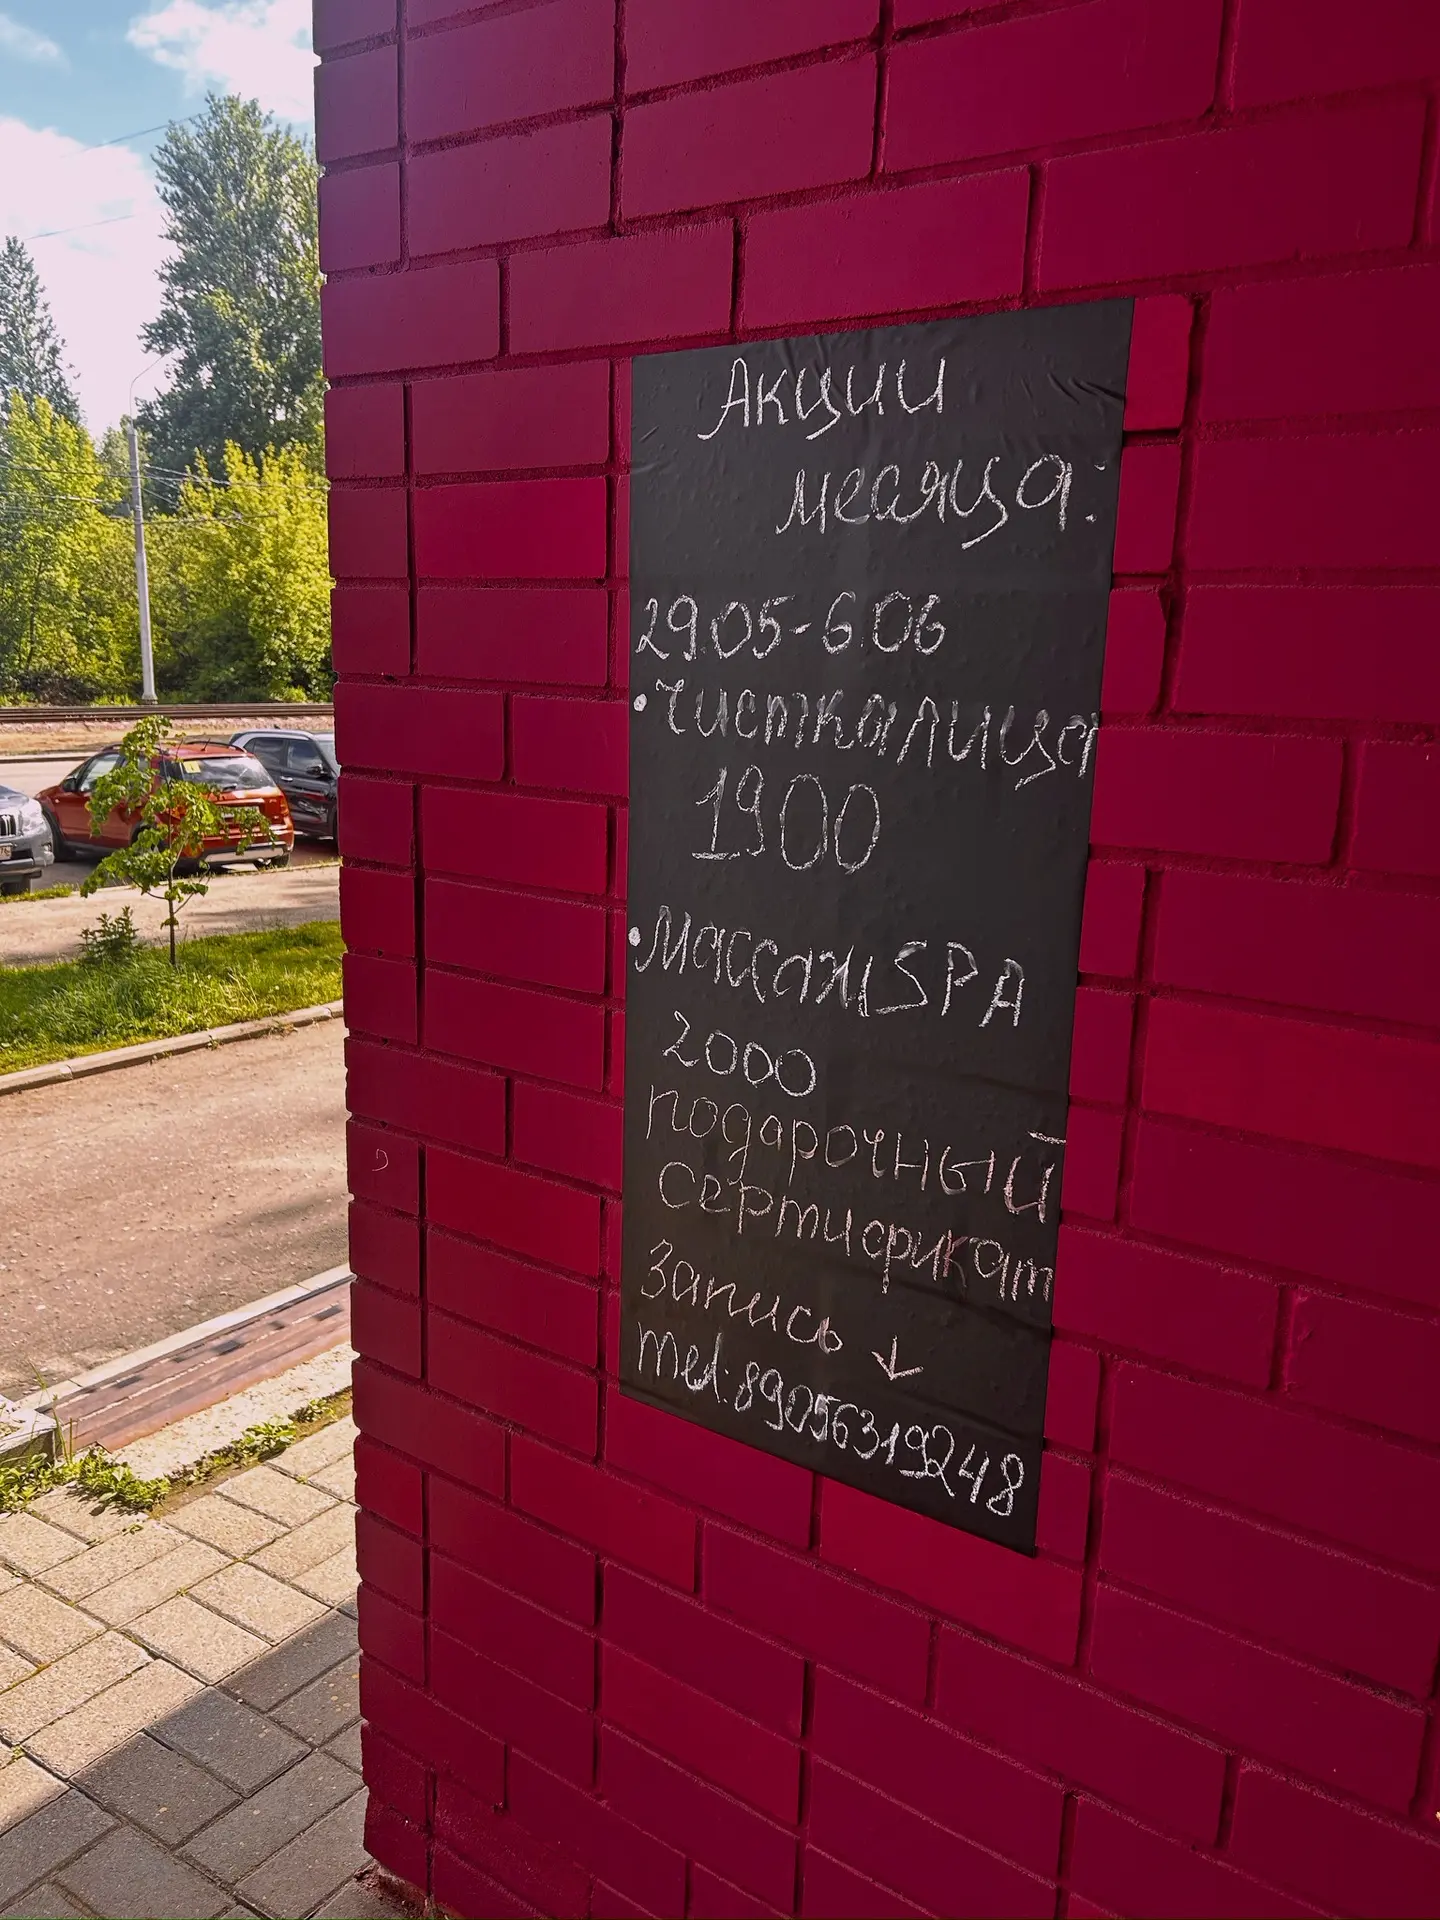 Акции
месяца:
29.05-6.06
•Чистка лица
1900
•Массаж SPA
2000
подарочный
сертификат
Запись ↓
тел:89056319248